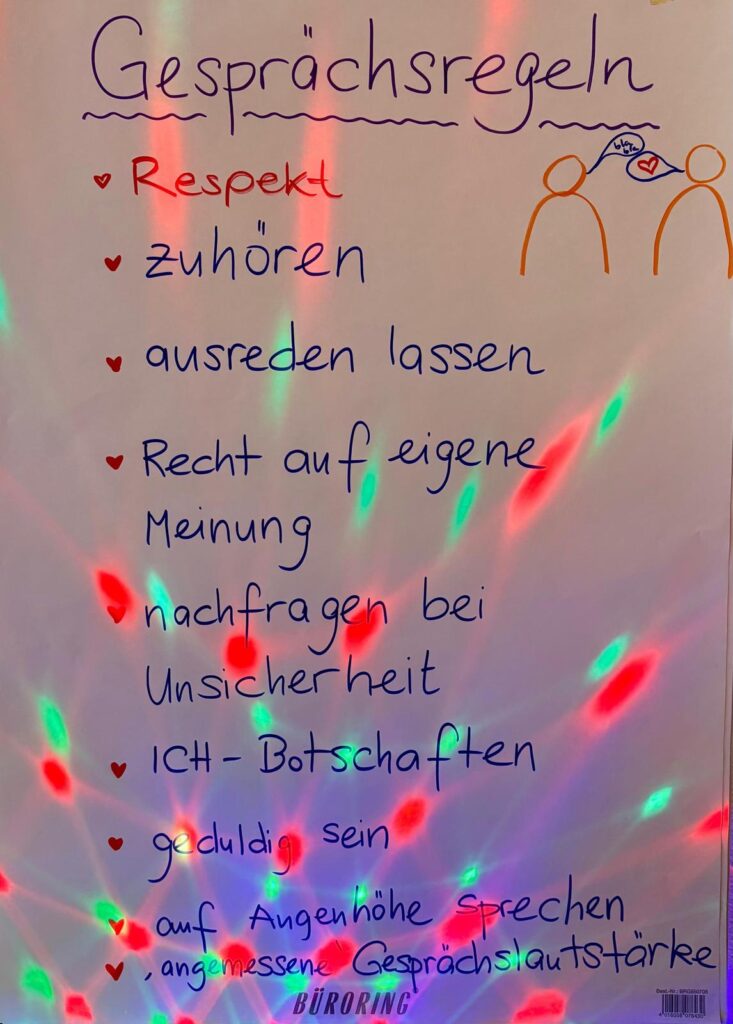 Gesprächsregeln
bla
bla
Respekt
zuhören
ausreden lassen
Recht auf eigene
Meinung
nachfragen bei
Unsicherheit
ICH - Botschaften
geduldig sein
auf Augenhöhe sprechen
, angemessene Gesprächslautstärke
BÜRORING